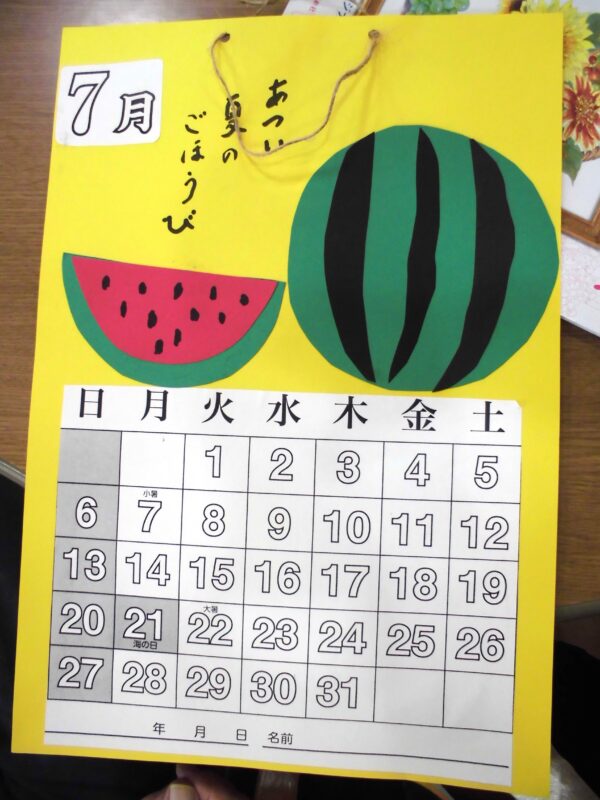 7月
あつい
夏の
ごほうび
日 月 火 水 木 金 土
1 2 3 4 5
小暑
6 7 8 9 10 11 12
13 14 15 16 17 18 19
大暑
20 21 22 23 24 25 26
海の日
27 28 29 30 31
年 月 日 名前